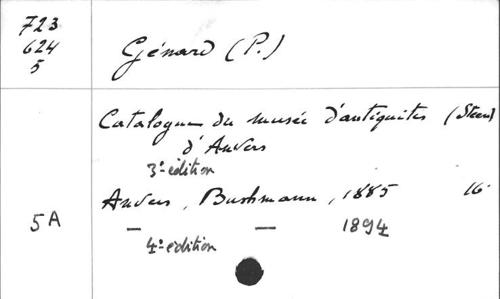 723
624
5
Génard (P.)
Catalogue du musée d'antiquités (Steen)
d'Anvers
3e édition
Anvers, Buschmann, 1885 16°
5A — — 1894
4e édition